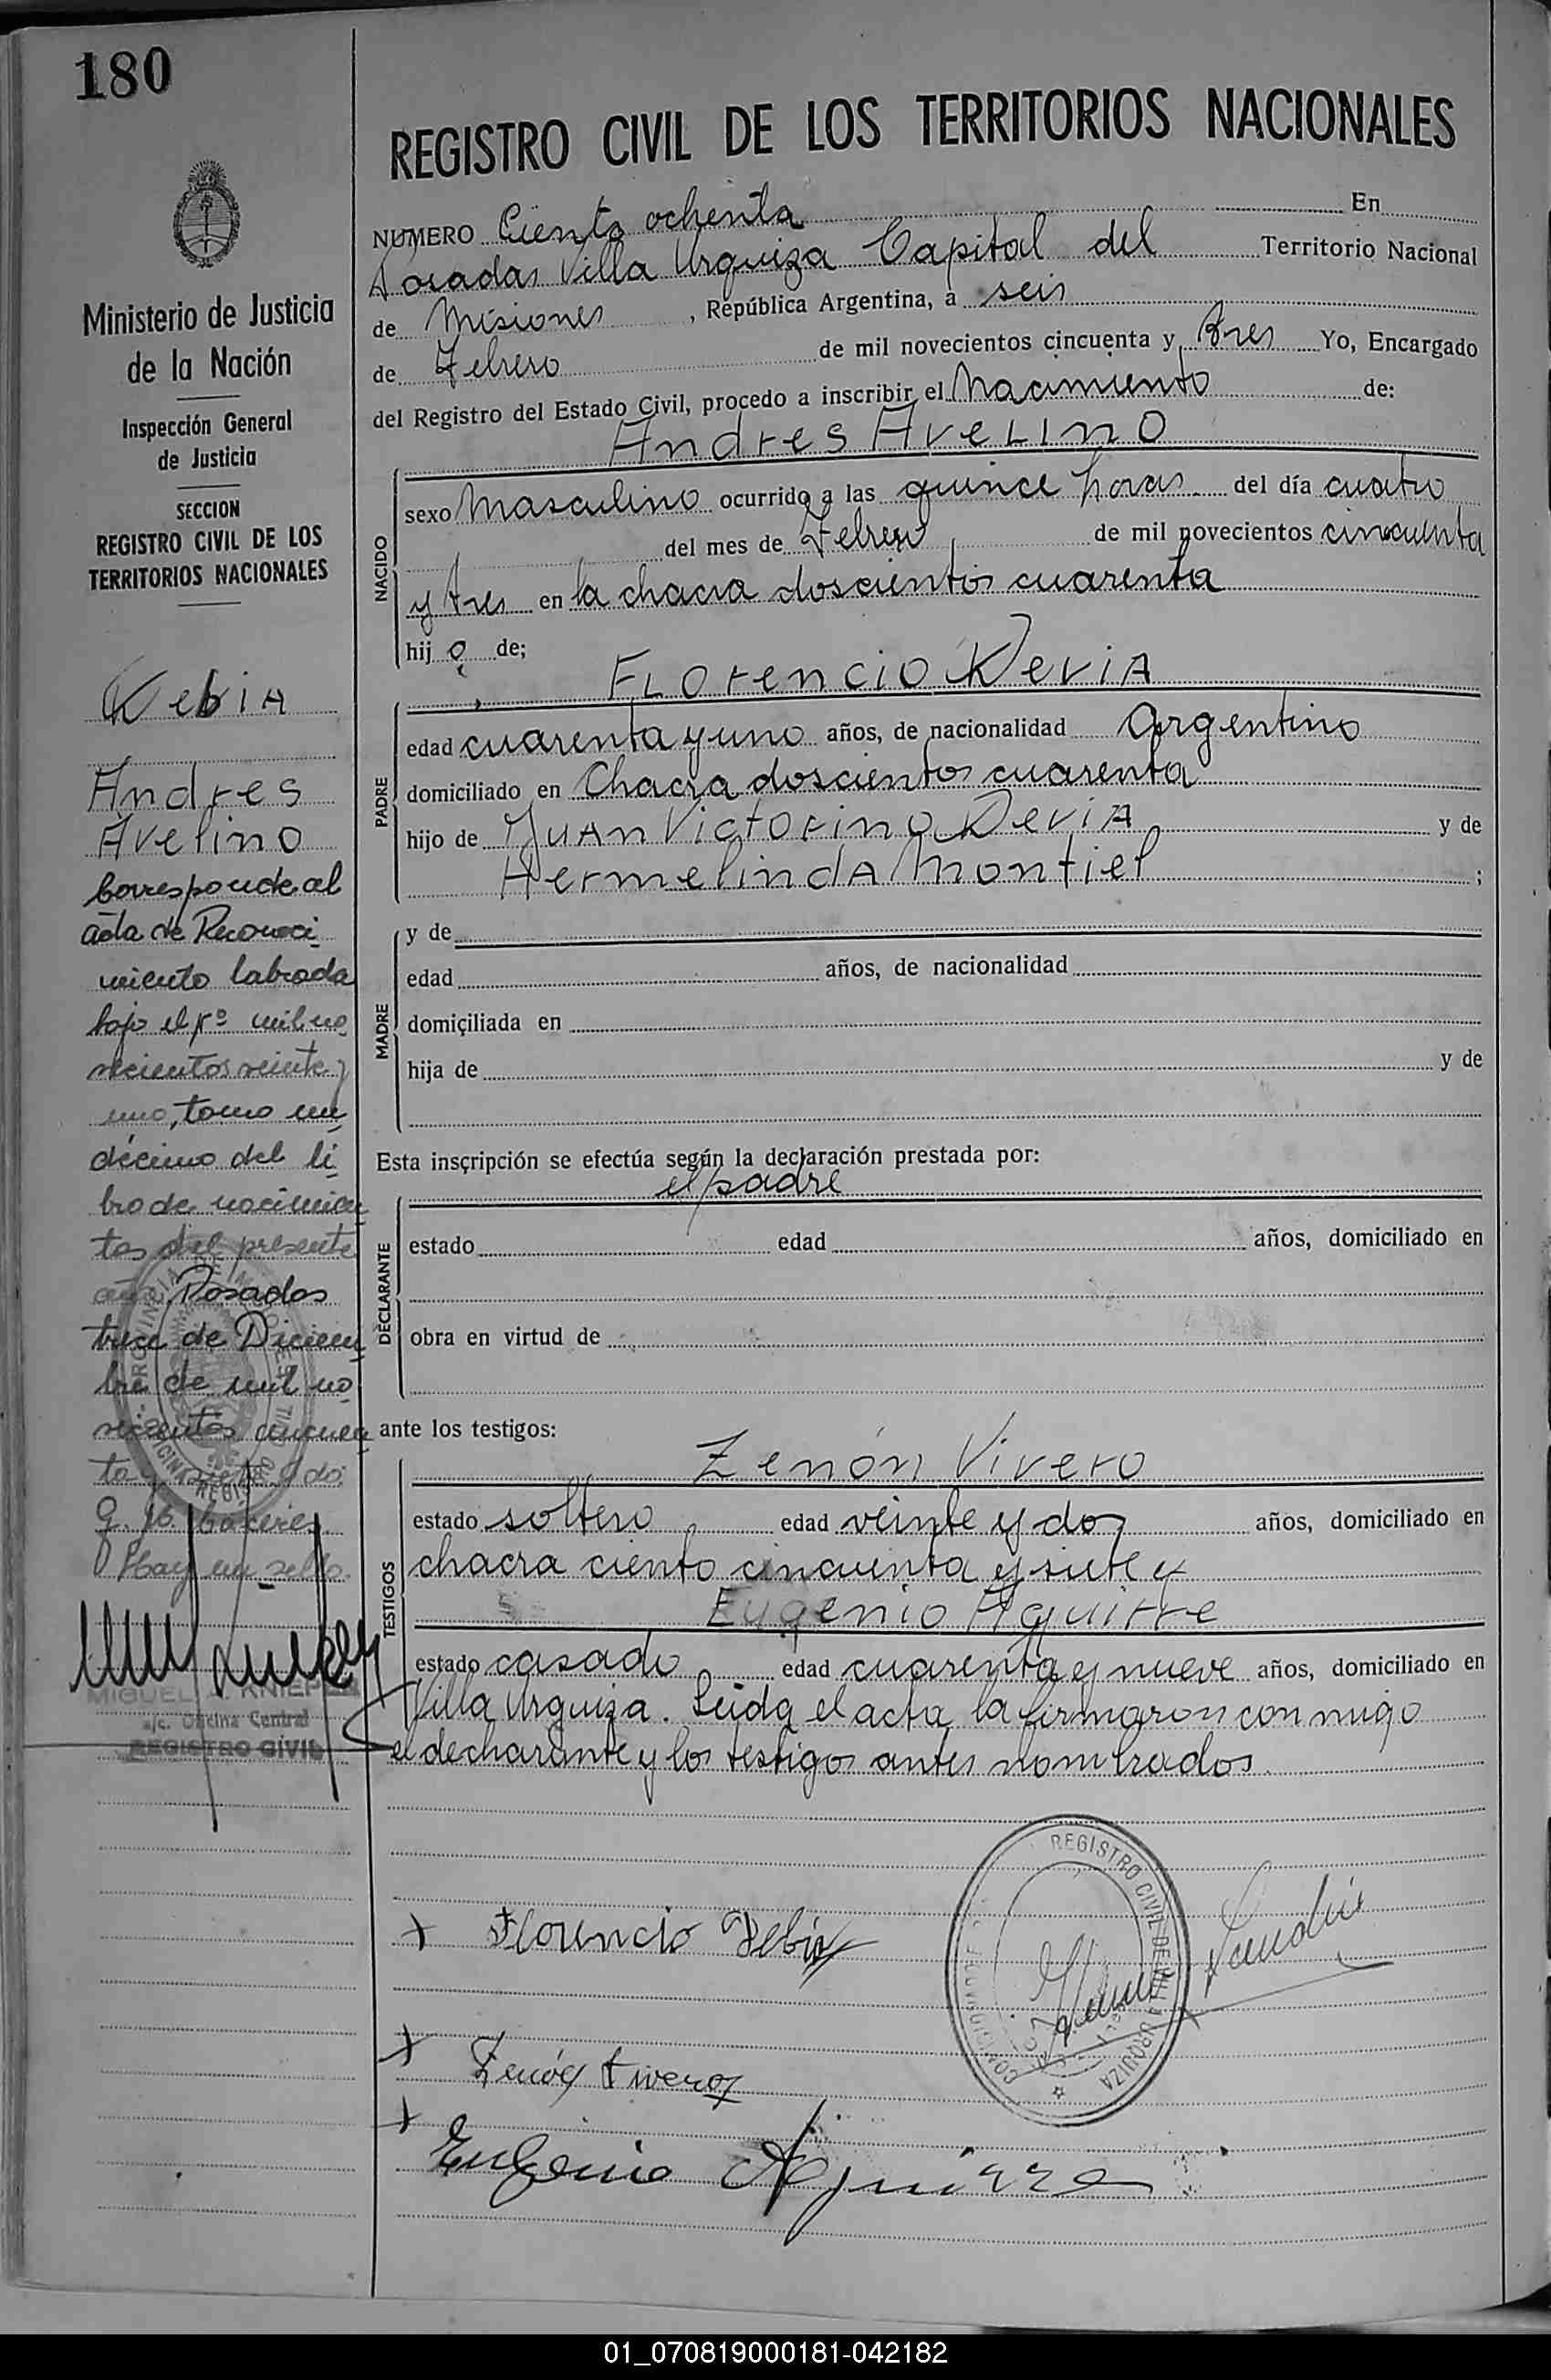 180
Ministerio de Justicia
de la Nación
Inspección General
de Justicia
SECCION
REGISTRO CIVIL DE LOS
TERRITORIOS NACIONALES
Debia
Andres
Avelino
Corresponde al
acta de Reconoci
miento labrada
bajo el Nº mil no
vecientos veinte y
uno, tomo un
décimo del li
bro de nacimien
tos del presente
año. Posadas
trece de Diciem
bre de mil no
vecientos cincuen
ta y
Hay un sello.
MIGUEL A. KNIEPER
a/c. Oficina Central
REGISTRO CIVIL
REGISTRO CIVIL DE LOS TERRITORIOS NACIONALES
NUMERO Ciento ochenta En
Posadas Villa Urquiza Capital del Territorio Nacional
de Misiones, República Argentina, a seis
de Febrero de mil novecientos cincuenta y Tres Yo, Encargado
del Registro del Estado Civil, procedo a inscribir el Nacimiento de:
Andres Avelino
NACIDO
sexo Masculino ocurrido a las quince horas del día cuatro
del mes de Febrero de mil novecientos cincuenta
y tres en la chacra doscientos cuarenta
hijo de;
Florencio Devia
PADRE
edad cuarenta y uno años, de nacionalidad Argentino
domiciliado en Chacra doscientos cuarenta
hijo de Juan Victorino Devia y de
Hermelinda Montiel;
MADRE
y de
edad años, de nacionalidad
domiciliada en
hija de y de
Esta inscripción se efectúa según la declaración prestada por:
el padre
DECLARANTE
estado edad años, domiciliado en
obra en virtud de
ante los testigos:
Zenón Vivero
TESTIGOS
estado soltero edad veinte y dos años, domiciliado en
chacra ciento cincuenta y siete y
Eugenio Aguirre
estado casado edad cuarenta y nueve años, domiciliado en
Villa Urquiza. Leida el acta la firmaron con migo
el decharante y los testigos antes nombrados.
REGISTRO CIVIL DE VILLA URQUIZA
Florencio Debia
Zenón Vivero
Eugenio Aguirre
01_070819000181-042182